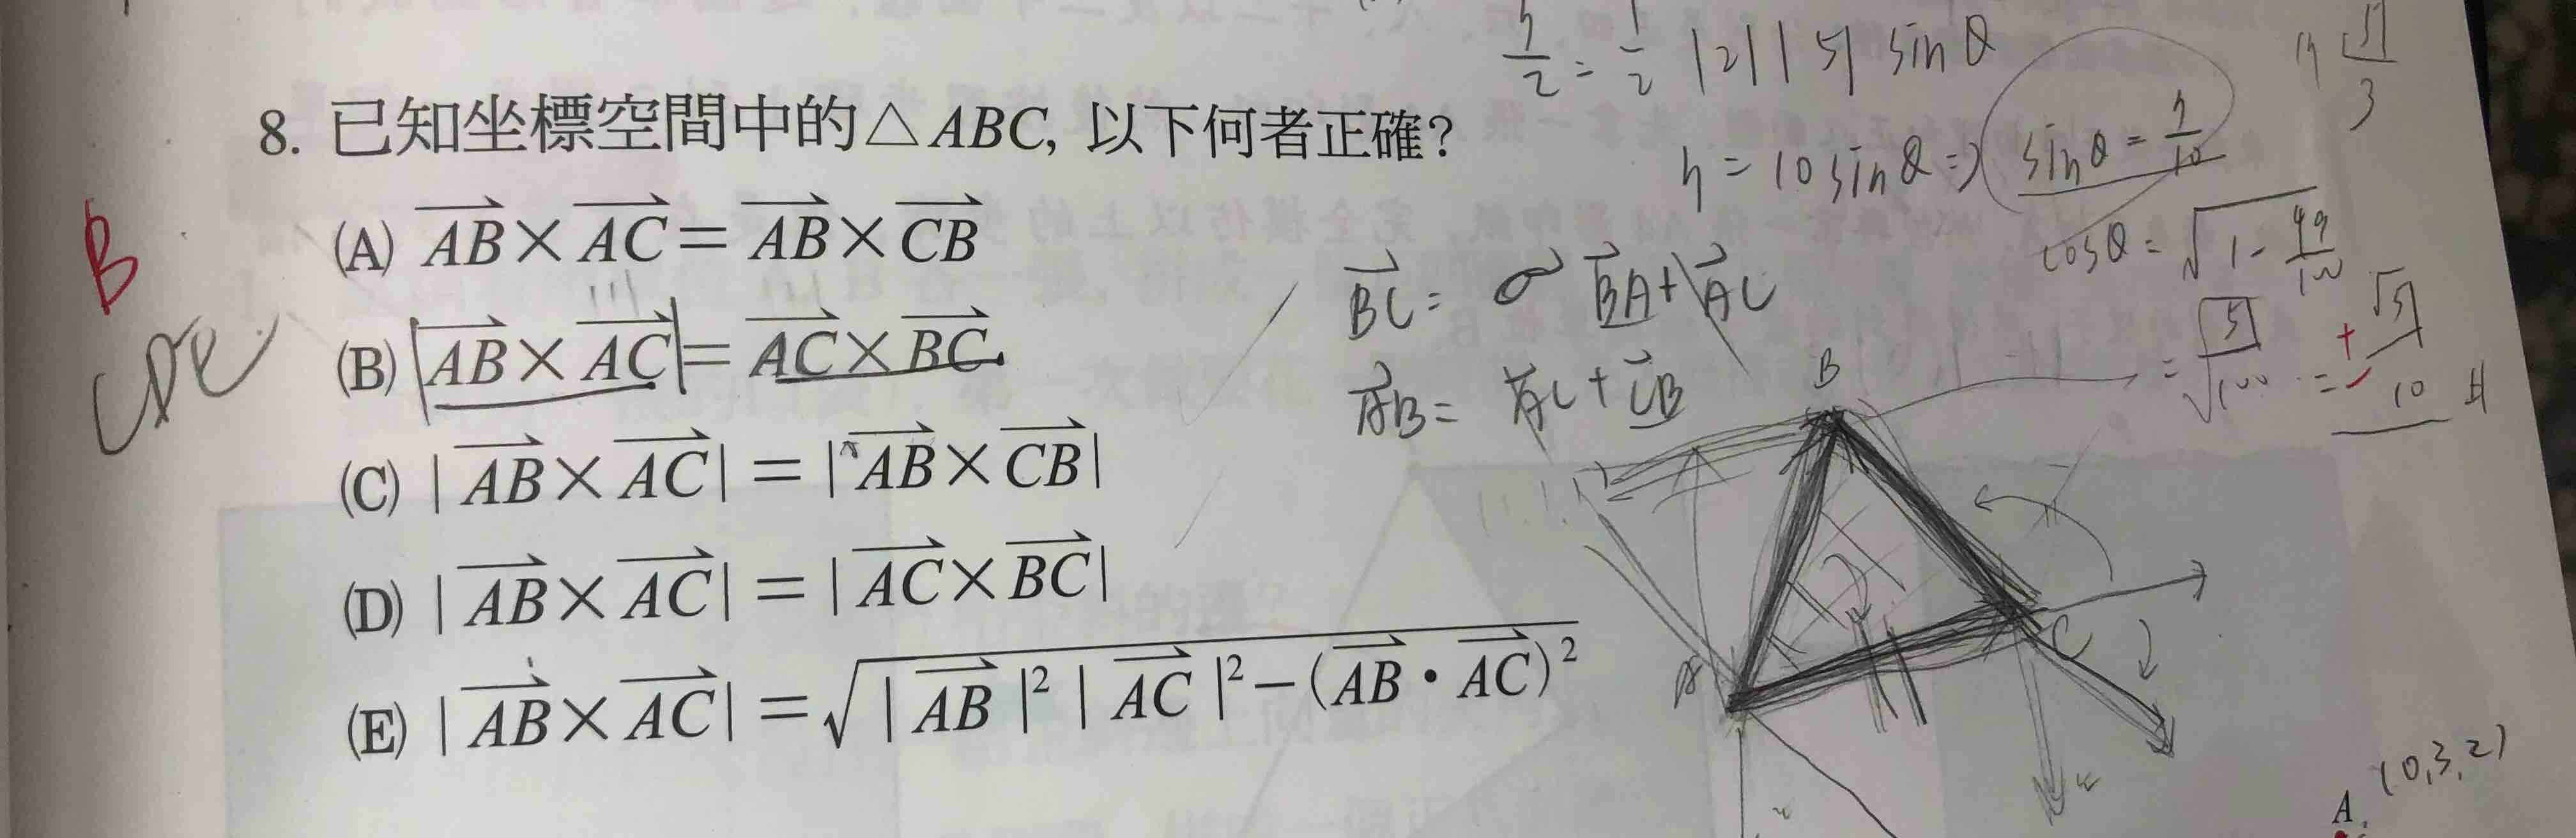 8. 已知坐標空間中的△ABC, 以下何者正確?
(A) AB×AC=AB×CB
(B) |AB×AC|=AC×BC
(C) |AB×AC|=|AB×CB|
(D) |AB×AC|=|AC×BC|
(E) |AB×AC|=√|AB|²|AC|²−(AB·AC)²
B
CDE
7/2=1/2|2||5|sinθ
7=10sinθ⇒sinθ=7/10
BC= BA+AC
AB= AC+CB
B
A
C
A (0,3,2)